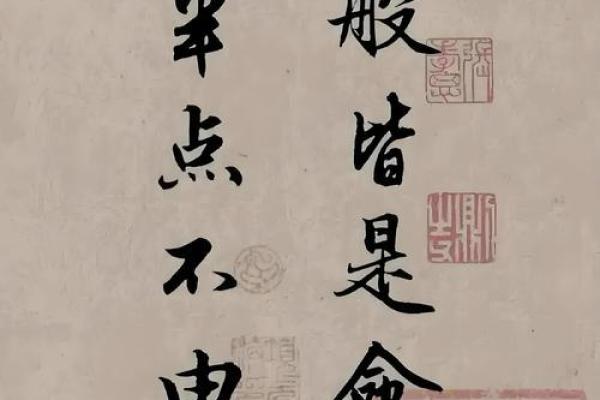 般皆是命
半点不由